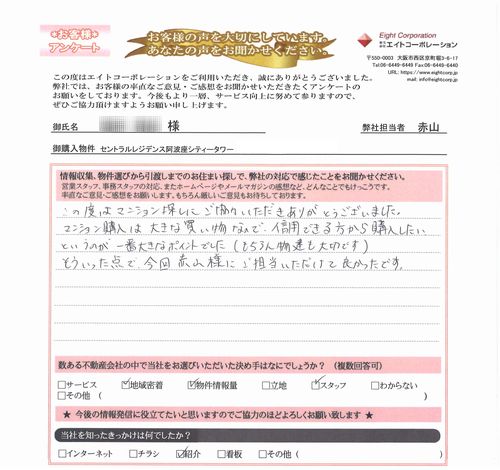 お客様
アンケート
お客様の声を大切にしています。
あなたの声をお聞かせください。
Eight Corporation
株式会社エイトコーポレーション
〒550-0003 大阪市西区京町堀3-6-17
Tel:06-6449-6449 Fax:06-6449-6440
URL: https://www.eightcorp.jp
mail: info@eightcorp.jp
この度はエイトコーポレーションをご利用いただき、誠にありがとうございました。
弊社では、お客様の率直なご意見・ご感想をお聞かせいただきたくアンケートの
お願いをしております。今後もより一層、サービス向上に努めて参りますので、
ぜひご協力頂けますようお願い申し上げます。
御氏名 様 弊社担当者 赤山
御購入物件 セントラルレジデンス阿波座シティータワー
情報収集、物件選びから引渡しまでのお住まい探しで、弊社の対応で感じたことをお聞かせください。
営業スタッフ、事務スタッフの対応、またホームページやメールマガジンの感想など、どんなことでもけっこうです。
率直なご意見・ご感想をお願いします。もちろん厳しいご意見もお待ちしております。
この度はマンション探しにご協力いただきありがとうございました。
マンション購入は大きな買い物なので、信用できる方から購入したい
というのが一番大きなポイントでした(もちろん物件も大切です)
そういった点で、今回赤山様にご担当いただけて良かったです。
数ある不動産会社の中で当社をお選びいただいた決め手はなにでしょうか? (複数回答可)
□サービス ☑地域密着 ☑物件情報量 □立地 ☑スタッフ □わからない
□その他 ( )
★ 今後の情報発信に役立てたいと思いますのでご協力のほどよろしくお願い致します ★
当社を知ったきっかけは何でしたか?
□インターネット □チラシ ☑紹介 □看板 □その他 ( )